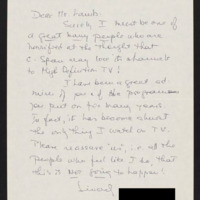 Dear Mr. Lamb:
Surely I must be one of
a great many people who are
horrified at the thought that
C-Span may lose its channels
to High Definition TV!
I have been a great ad-
mirer of your programs
you put on for many years.
In fact, it has become almost
the only thing I watch on TV.
Many reassure us, i.e. all the
people who feel like I do, that
this is not going to happen!
Sincerely